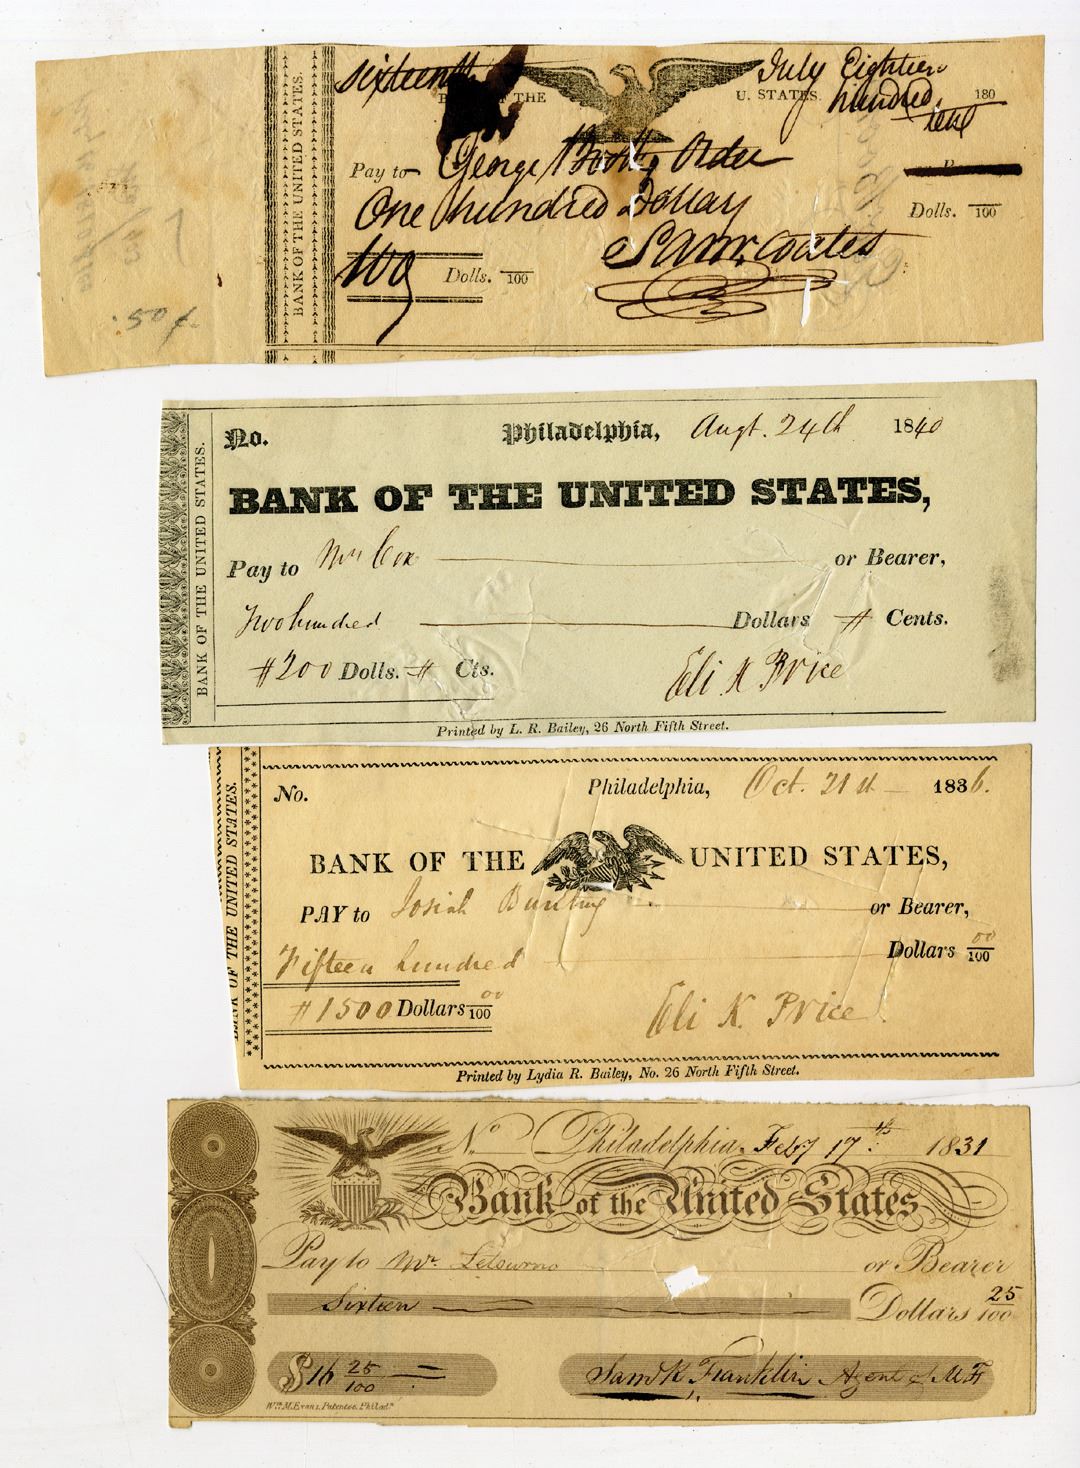 BANK OF THE UNITED STATES.
sixteenth July Eighteen
THE U. STATES. hundred 180
Pay to George Booth, Order
One hundred Dollars Dolls. /100
100 Dolls. /100 Saml. Coates
.50
BANK OF THE UNITED STATES.
No. Philadelphia, Augt. 24th 1840
BANK OF THE UNITED STATES,
Pay to Mr Cox or Bearer,
Two hundred Dollars # Cents.
#200 Dolls. # Cts. Eli K Price
Printed by L. R. Bailey, 26 North Fifth Street.
BANK OF THE UNITED STATES.
No. Philadelphia, Oct. 21st 1836.
BANK OF THE UNITED STATES,
PAY to Josiah Bunting or Bearer,
Fifteen hundred Dollars 00/100
#1500 Dollars 00/100 Eli K. Price
Printed by Lydia R. Bailey, No. 26 North Fifth Street.
No Philadelphia, Feby 17th 1831
Bank of the United States
Pay to Mr. Letourno or Bearer
Sixteen Dollars 25/100
$16 25/100 Saml K. Franklin Agent of M F
Wm. M. Evans, Patentee. Philada.